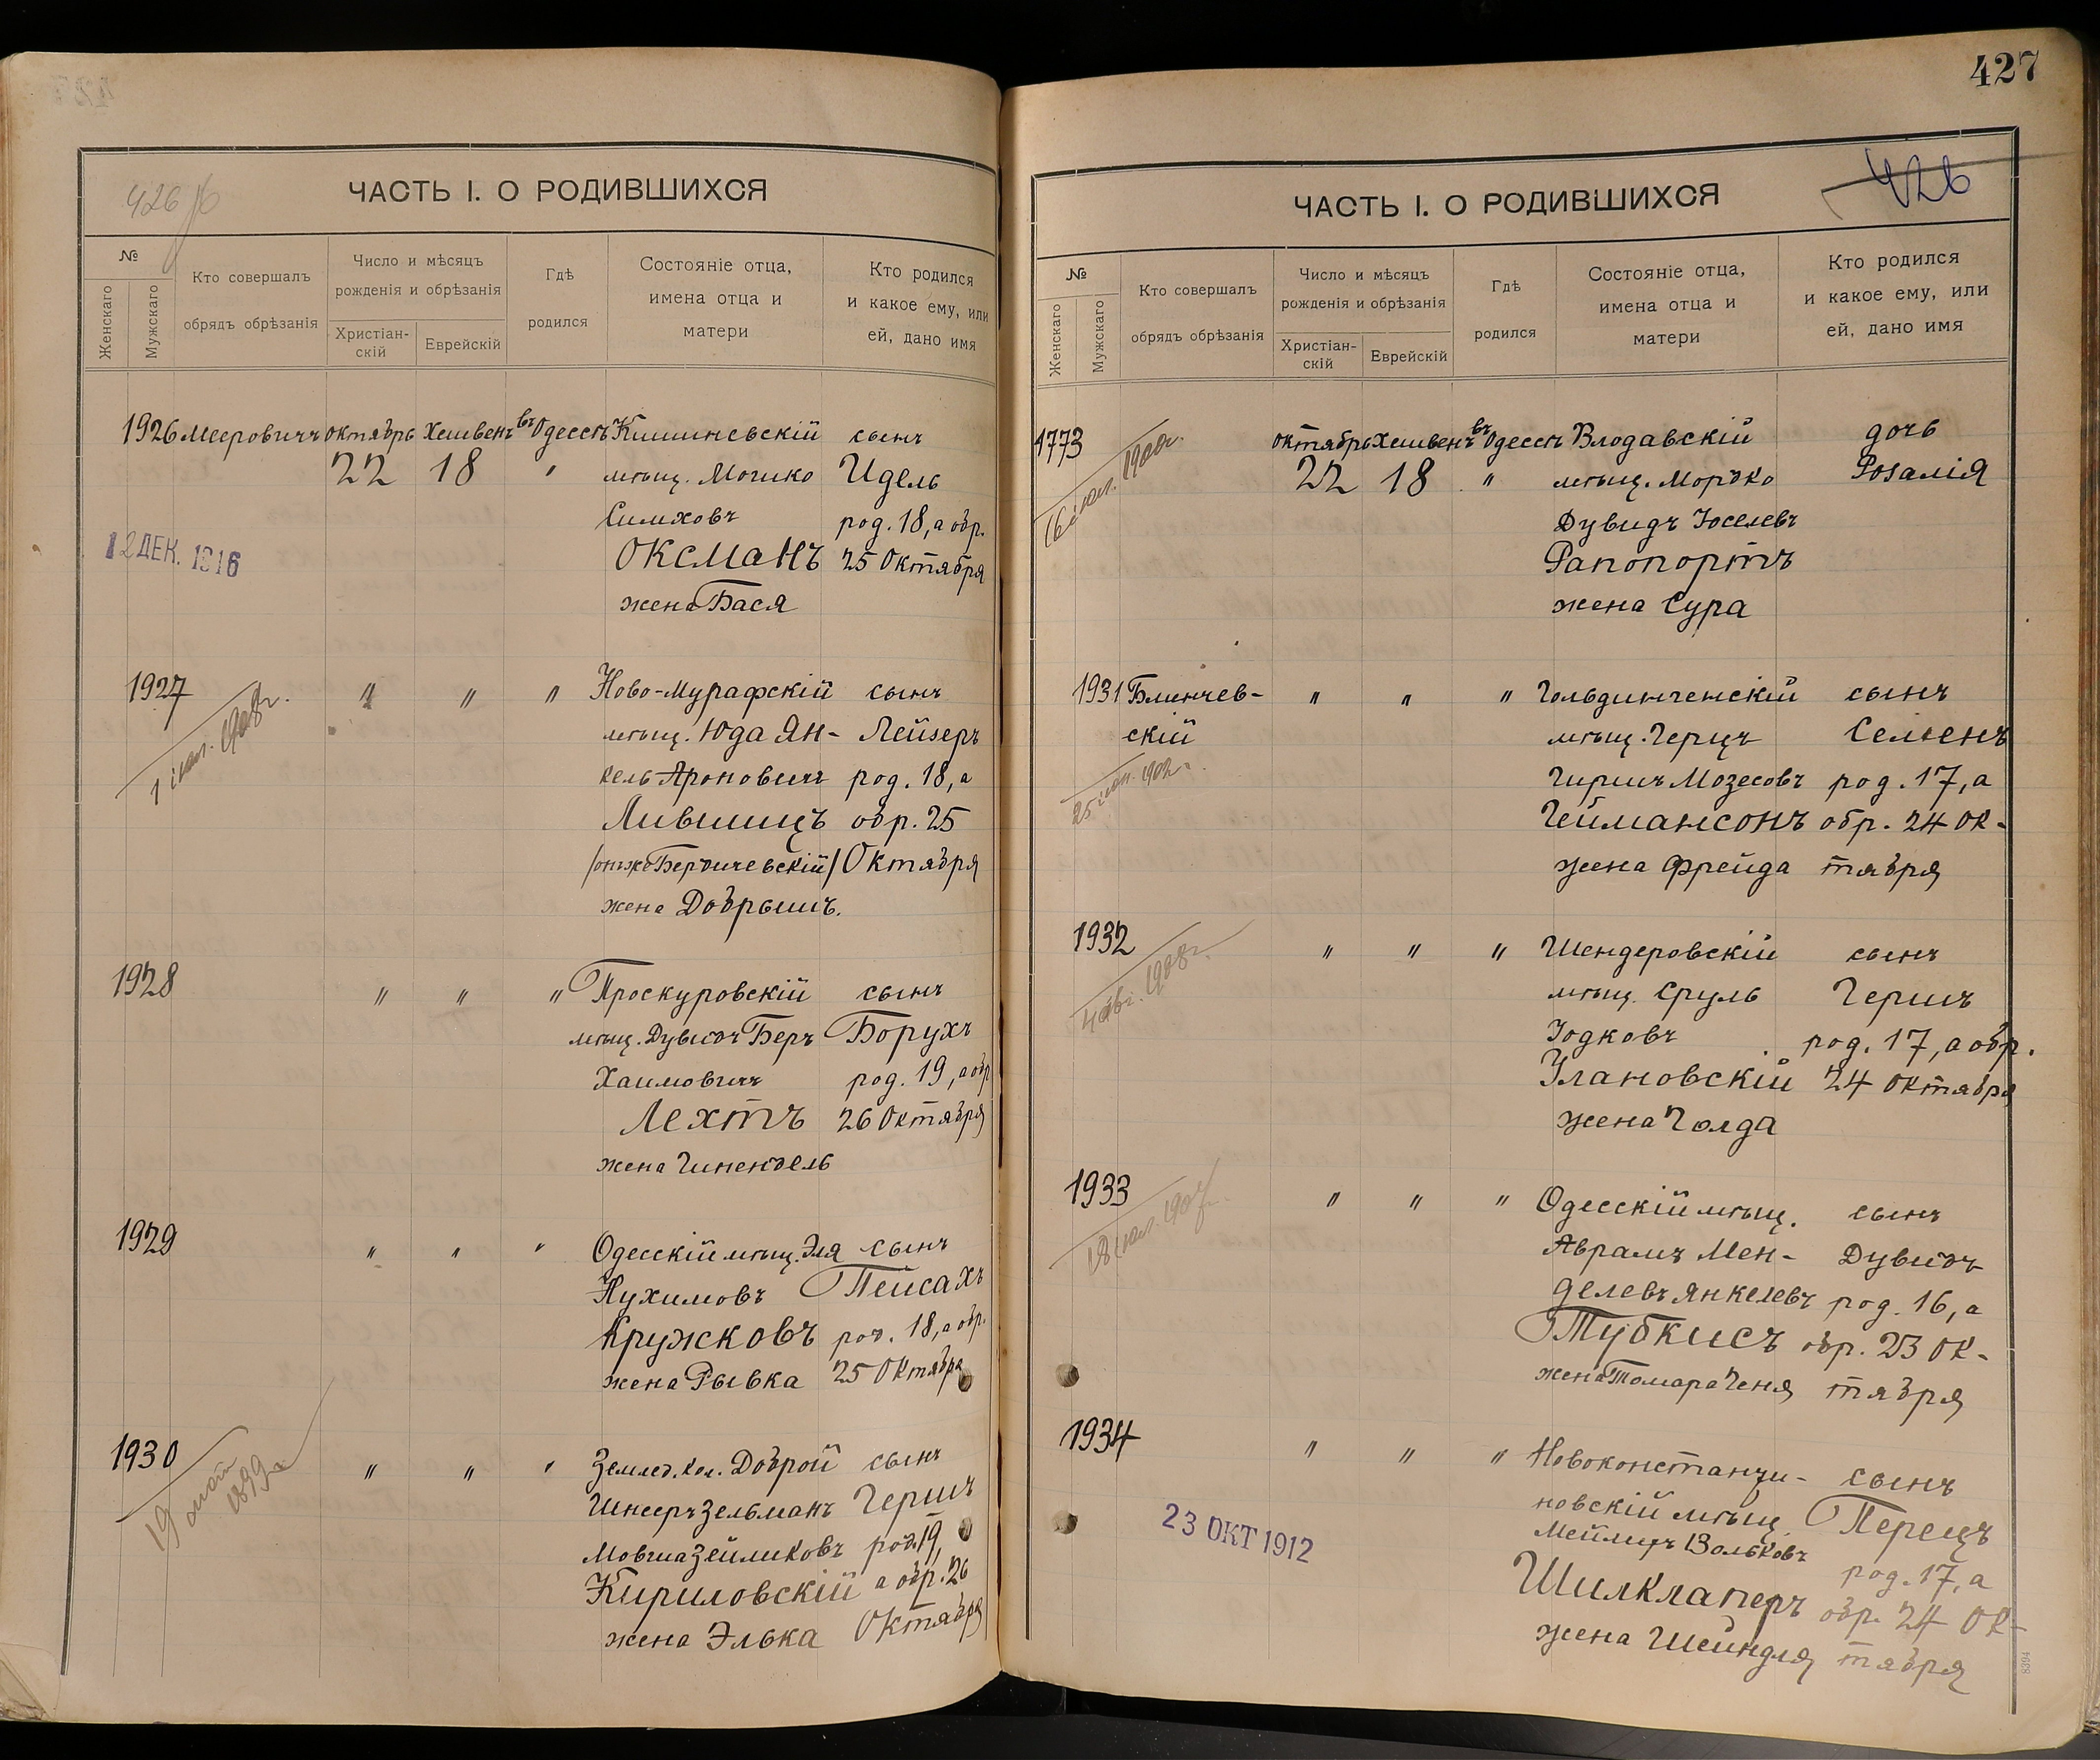 427
426 об
ЧАСТЬ I. О РОДИВШИХСЯ
№
Женскаго
Мужскаго
Кто совершалъ
обрядъ обрѣзанія
Число и мѣсяцъ
рожденія и обрѣзанія
Христіан-
скій
Еврейскій
Гдѣ
родился
Состояніе отца,
имена отца и
матери
Кто родился
и какое ему, или
ей, дано имя
1926 Мееровичъ октябрь Хешвенъ въ Одессѣ Кишиневскій сынъ
22 18 " мѣщ. Мошко Идель
Симховъ род. 18, а обр.
12 ДЕК. 1916
Оксманъ 25 Октября
жена Бася
1927 " " " Ново-Мурафскій сынъ
1 іюл. 1908 г.
мѣщ. Юда Ян- Лейзеръ
кель Ароновичъ род. 18, а
Лившицъ обр. 25
/онъ же Бердичевскій/ Октября
жена Добрышъ.
1928 " " " Проскуровскій сынъ
мѣщ. Дувидъ Беръ Борухъ
Хаимовичъ род. 19, а обр
Лехтъ 26 Октября
жена Гинендель
1929 " " " Одесскій мѣщ. Эля сынъ
Нухимовъ Пейсахъ
Кружковъ род. 18, а обр.
жена Рывка 25 Октября
1930 " " " Землед. кол. Доброй сынъ
19 1899 г.
Шнееръ Зельманъ Гершъ
Мовша Зейликовъ род. 19,
Кириловскій а обр. 26
жена Элька Октября
ЧАСТЬ I. О РОДИВШИХСЯ
426
№
Женскаго
Мужскаго
Кто совершалъ
обрядъ обрѣзанія
Число и мѣсяцъ
рожденія и обрѣзанія
Христіан-
скій
Еврейскій
Гдѣ
родился
Состояніе отца,
имена отца и
матери
Кто родился
и какое ему, или
ей, дано имя
1773 октябрь Хешвенъ въ Одессѣ Влодавскій дочь
16 1900 г.
22 18 " мѣщ. Мордко Розалія
Дувидъ Іоселевъ
Рапопортъ
жена Сура
1931 Блинчев- " " " Гольдингенскій сынъ
скій мѣщ. Герцъ Семенъ
25 1902 г.
Гиршъ Мозесовъ род. 17, а
Геймансонъ обр. 24 Ок-
жена Фрейда тября
1932 " " " Шендеровскій сынъ
4 авг. 1908 г.
мѣщ. Сруль Гершъ
Іодковъ род. 17, а обр.
Улановскій 24 октября
жена Голда
1933 " " " Одесскій мѣщ. сынъ
18
Аврамъ Мен- Дувидъ
делевъ Янкелевъ род. 16, а
Тубкисъ обр. 23 Ок-
жена Томара Геня тября
1934 " " " Новоконстанти- сынъ
новскій мѣщ. Перецъ
23 ОКТ 1912
Мейлихъ Вольковъ
род. 17, а
Шилклаперъ обр. 24 Ок-
жена Шейндля тября
8394